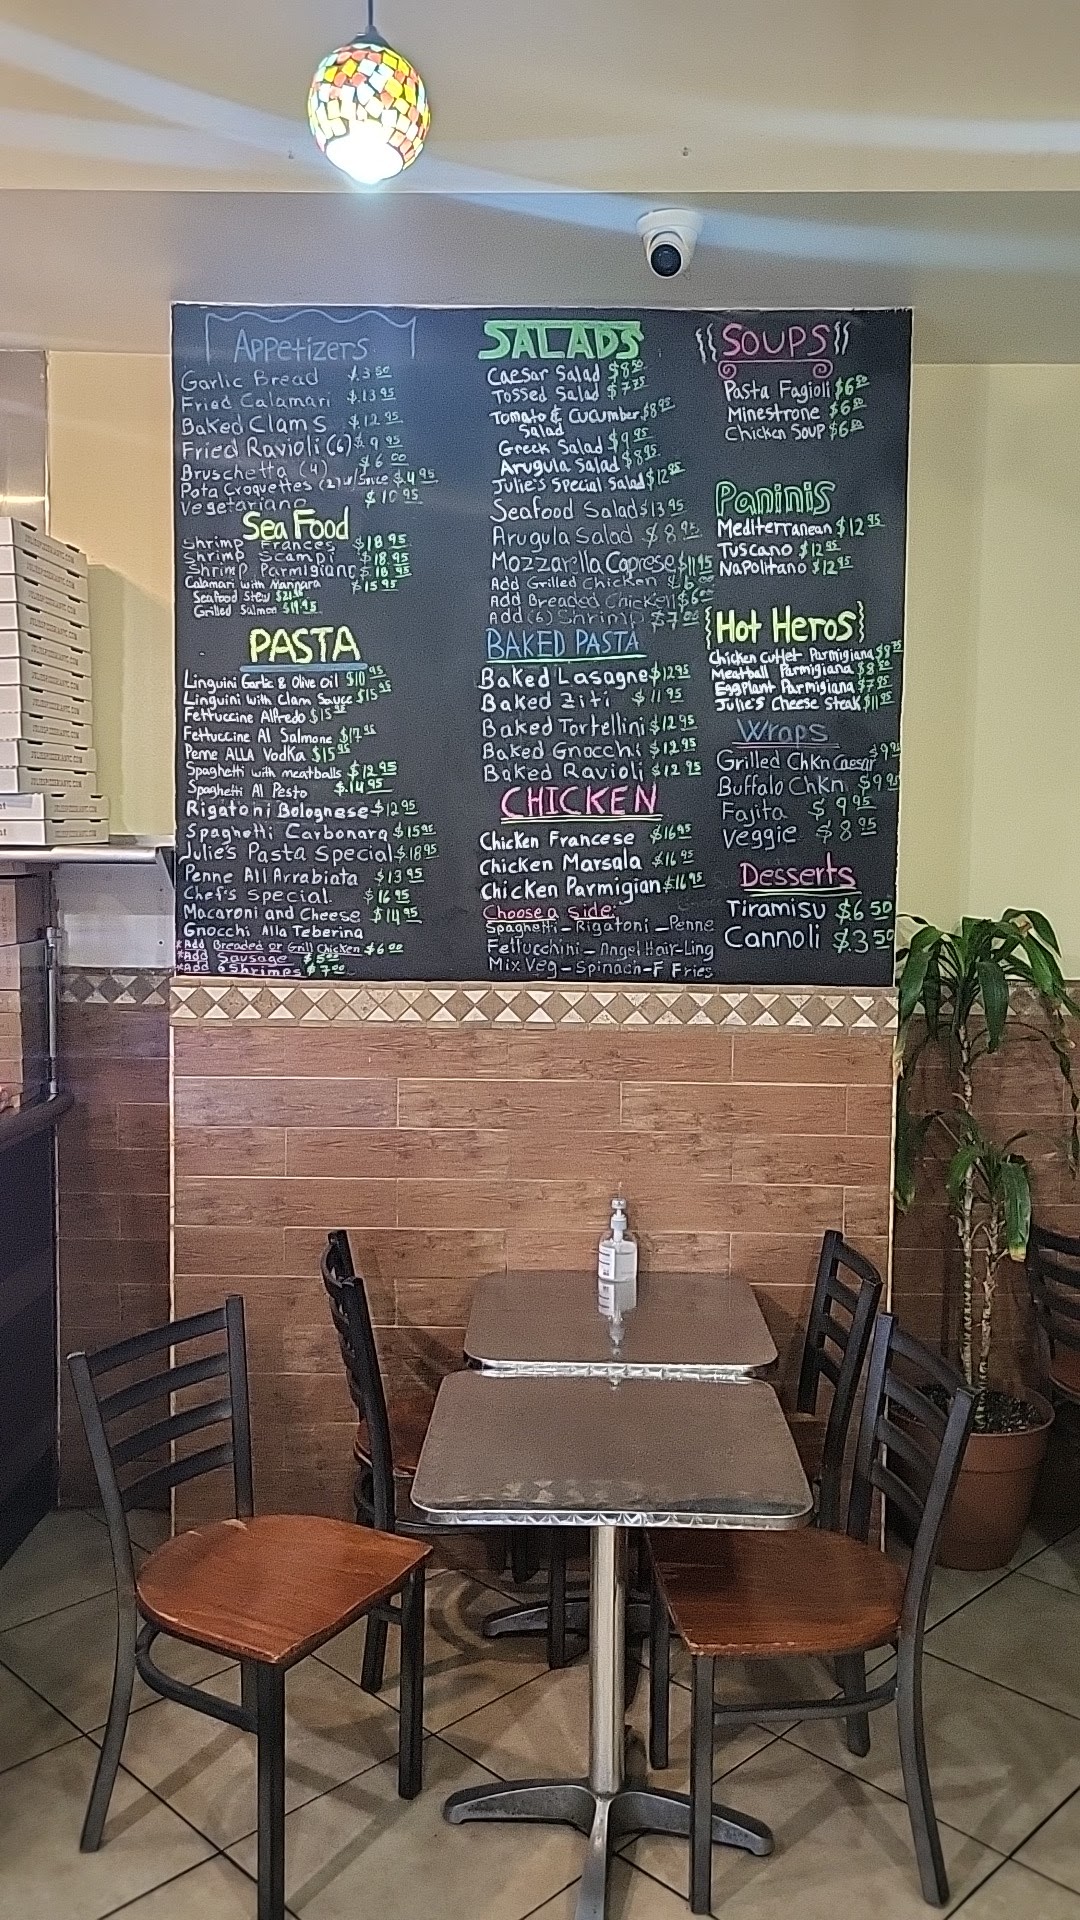 Appetizers
Garlic Bread $.3 50
Fried Calamari $.13 95
Baked Clams $12 95
Fried Ravioli (6) $9 95
Bruschetta (4) $6 00
Pota Croquettes (2) w/Sauce $4 95
Vegetariano $10 95
Sea Food
Shrimp Frances $18 95
Shrimp Scampi $18.95
Shrimp Parmigiana $18 95
Calamari with Marinara $15 95
Seafood Stew
Grilled Salmon $19 95
PASTA
Linguini Garlic & Olive Oil $10 95
Linguini with Clam Sauce $15 95
Fettuccine Alfredo $15 95
Fettuccine Al Salmone $17 95
Penne ALLA Vodka $15 95
Spaghetti with meatballs $12 95
Spaghetti Al Pesto $.14 95
Rigatoni Bolognese $12 95
Spaghetti Carbonara $15 95
Julie's Pasta Special $18 95
Penne All Arrabiata $13 95
Chef's Special $16 95
Macaroni and Cheese $14 95
Gnocchi Alla Teberina
*Add Breaded or Grill Chicken $6 00
*Add Sausage $5 00
*Add 6 Shrimps $7 00
SALADS
Caesar Salad $8 50
Tossed Salad $7 25
Tomato & Cucumber $8 95
Salad
Greek Salad $9 95
Arugula Salad $8 95
Julie's Special Salad $12 95
Seafood Salad $13 95
Arugula Salad $8 95
Mozzarella Coprese $11 95
Add Grilled Chicken $6 00
Add Breaded Chicken $6 00
Add (6) Shrimp $7 00
BAKED PASTA
Baked Lasagne $12 95
Baked Ziti $11 95
Baked Tortellini $12 95
Baked Gnocchi $12 95
Baked Ravioli $12 95
CHICKEN
Chicken Francese $16 95
Chicken Marsala $16 95
Chicken Parmigian $16 95
Choose a side:
Spaghetti - Rigatoni - Penne
Fettucchini - Angel Hair - Ling
Mix Veg - Spinach - F Fries
SOUPS
Pasta Fagioli $6 50
Minestrone $6 50
Chicken Soup $6 50
Paninis
Mediterranean $12 95
Tuscano $12 95
Napolitano $12 95
Hot Heros
Chicken Cutlet Parmigiana $8 75
Meatball Parmigiana $8 50
EggPlant Parmigiana $7 95
Julie's Cheese Steak $11 95
Wraps
Grilled Chkn Caesar $9 95
Buffalo Chkn $9 95
Fajita $9 95
Veggie $8 95
Desserts
Tiramisu $6 50
Cannoli $.3 50